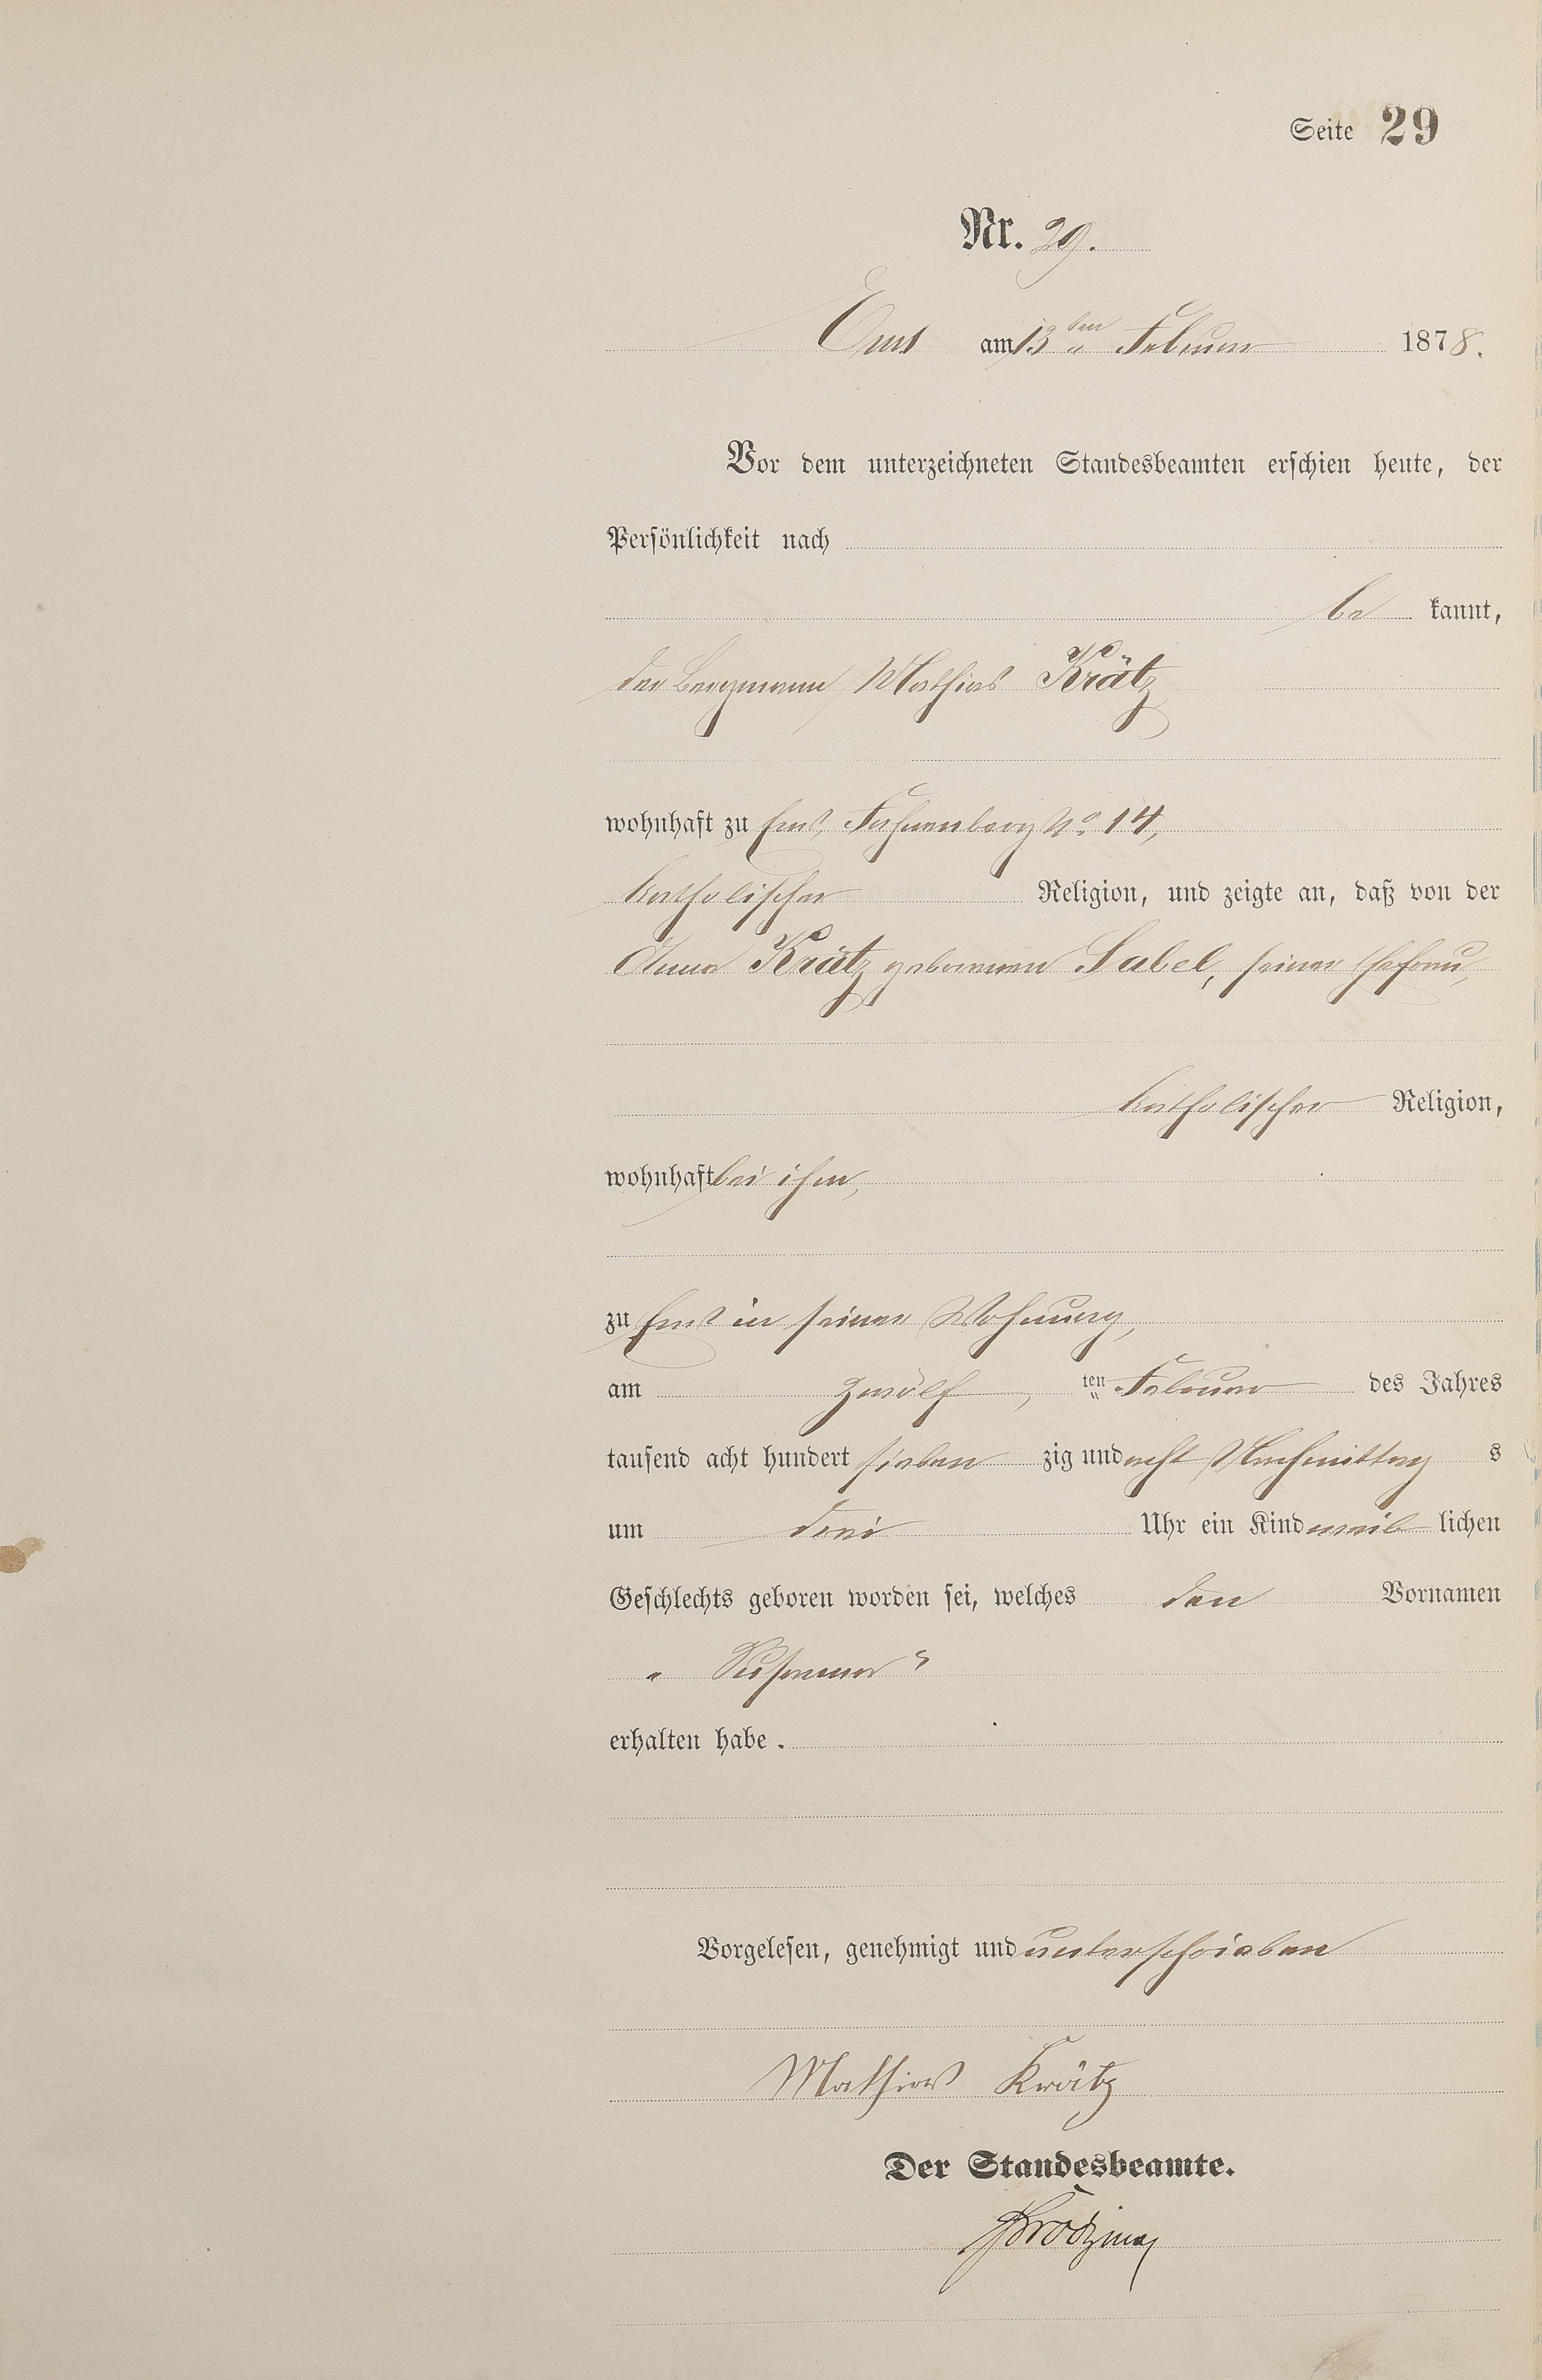 Seite 29
Nr. 29.
Ems am 13ten Februar 1878.
Vor dem unterzeichneten Standesbeamten erschien heute, der
Persönlichkeit nach
be kannt,
der Bergmann Mathias Krätz
wohnhaft zu Ems, No. 14,
katholischer Religion, und zeigte an, daß von der
Anna Krätz geborenen Sabel, seiner Ehefrau,
katholischer Religion,
wohnhaft bei ihm,
zu Ems in seiner Wohnung,
am zwölf ten Februar des Jahres
tausend acht hundert sieben zig und acht Nachmittag s
um drei Uhr ein Kind weib lichen
Geschlechts geboren worden sei, welches den Vornamen
„ Susanna "
erhalten habe.
Vorgelesen, genehmigt und unterschrieben
Mathias Krätz
Der Standesbeamte.